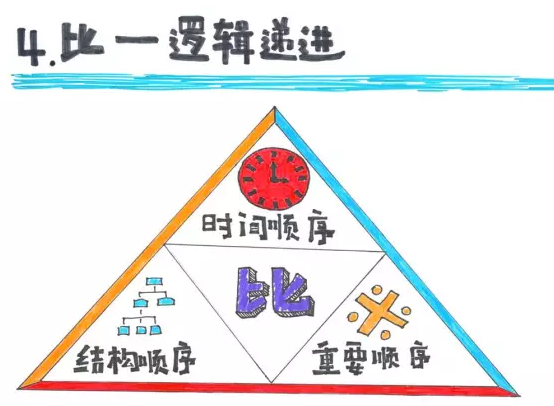 4.比一逻辑递进
时间顺序
比
结构顺序
重要顺序